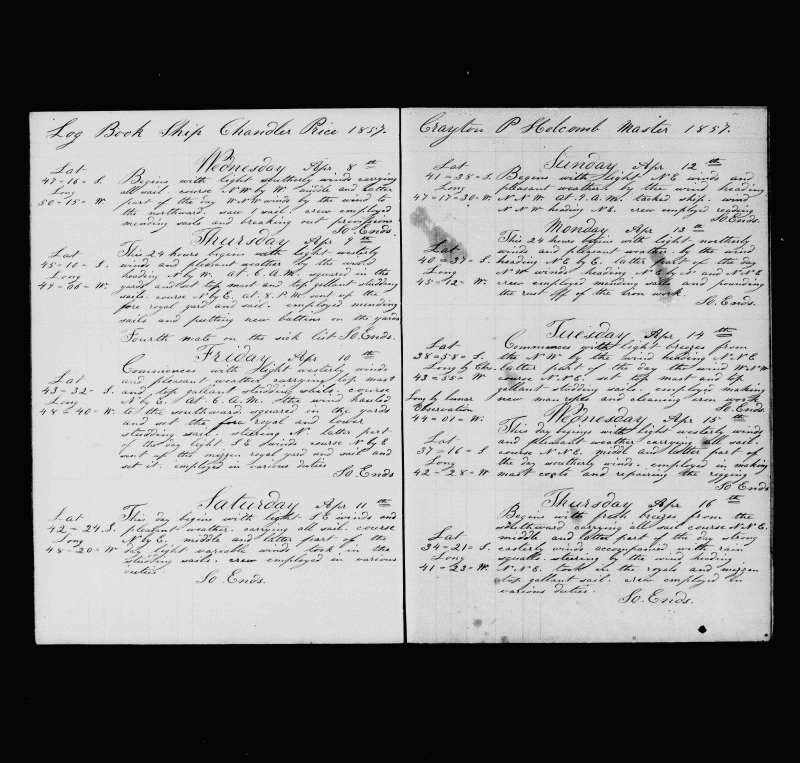 Log Book Ship Chandler Price 1857.
Wednesday Apr. 8th
Lat
47-16-S. Begins with light southerly winds carrying
Long all sail. course NW by W. middle and latter
50-15-W. part of the day WNW winds by the wind to
the northward. saw 1 sail. crew employed
mending sails and breaking out provisions
So Ends.
Thursday Apr 9th
Lat This 24 hours begins with light westerly
45-10-S. winds and pleasant weather by the wind
Long heading N by W. at 6. A.M. squared in the
49-06-W. yards and set top mast and top gallant studding
sails. course N by E. at 8. P.M. sent up the
fore royal yard and sail. employed mending
sails and putting new battins on the yards
Fourth mate on the sick list So Ends.
Friday Apr 10th
Commences with light westerly winds
Lat and pleasant weather carrying top mast
43-32-S. and top gallant studding sails. course
Long N by E. At 6. A.M. the wind hauled
48-40-W. to the southward squared in the yards
and set the fore royal and lower
studding sail. steering N. latter part
of the day light S E winds course N by E
went up the mizzen royal yard and sail and
set it. employed in various duties
So Ends
Saturday Apr 11th
Lat This day begins with light S E winds and
42-24 S. pleasant weather. carrying all sail. course
Long N by E. middle and latter part of the
48-20-W day light variable winds took in the
studding sails. crew employed in various
duties.
So Ends.
Crayton P Holcomb Master 1857.
Sunday Apr 12th
Lat
41-38-S. Begins with light N E winds and
Long pleasant weather by the wind heading
47-17-30-W. N N W. At 9. A.M. tacked ship. wind
N N W heading N E. crew employed reading
So Ends.
Monday Apr 13th
This 24 hours begins with light northerly
Lat winds and pleasant weather by the wind
40-37-S. heading N E by E. latter part of the day
Long N W winds heading N by E and N N E
45-12-W. crew employed mending sails and pounding
the rust off of the iron work.
So Ends.
Tuesday Apr 14th
Lat Commences with light breezes from
38-58-S. the N W by the wind heading N. N E
Long by Chr. latter part of the day the wind W N W
43-55-W course N. N E. set top mast and top
gallant studding sails. employed making
Long by lunar new manropes and cleaning iron work
Observation So Ends.
44-01-W.
Wednesday Apr 15th
This day begins with light westerly winds
Lat and pleasant weather carrying all sail.
37-16-S course N. N E. middl and latter part of
Long the day southerly winds. employed in making
42-28-W mast coats and repairing the rigging
So Ends
Thursday Apr 16th
Begins with fresh breezes from the
southward carrying all sail course N N E.
Lat middle and latter part of the day strong
34-21-S. easterly winds accompanied with rain
Long squals steering by the wind heading
41-23-W. N. N E. took in the royals and mizzen
top gallant sail. crew employed in
various duties.
So. Ends.